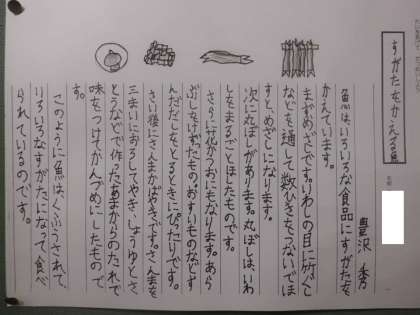 すがたをかえる魚
豊沢 秀
魚は、いろいろな食品にすがたを
かえています。
まずめざしです。いわしの目に竹ぐし
などを通して数ひきをつないでほ
すと、めざしになります。
次に丸ぼしがあります。丸ぼしは、いわ
しをまるごとほしたものです。
さらに花がつおにもなります。あら
ぶしをけずったもので、おすいものなどす
んだだしをとるときにぴったりです。
さい後にさんまかばやきです。さんまを
三まいにおろしてやき、しょうゆとさ
とうなどで作ったあまからのたれで
味をつけてかんづめにしたもので
す。
このように魚は、くふうされて、
いろいろなすがたになって食べ
られているのです。